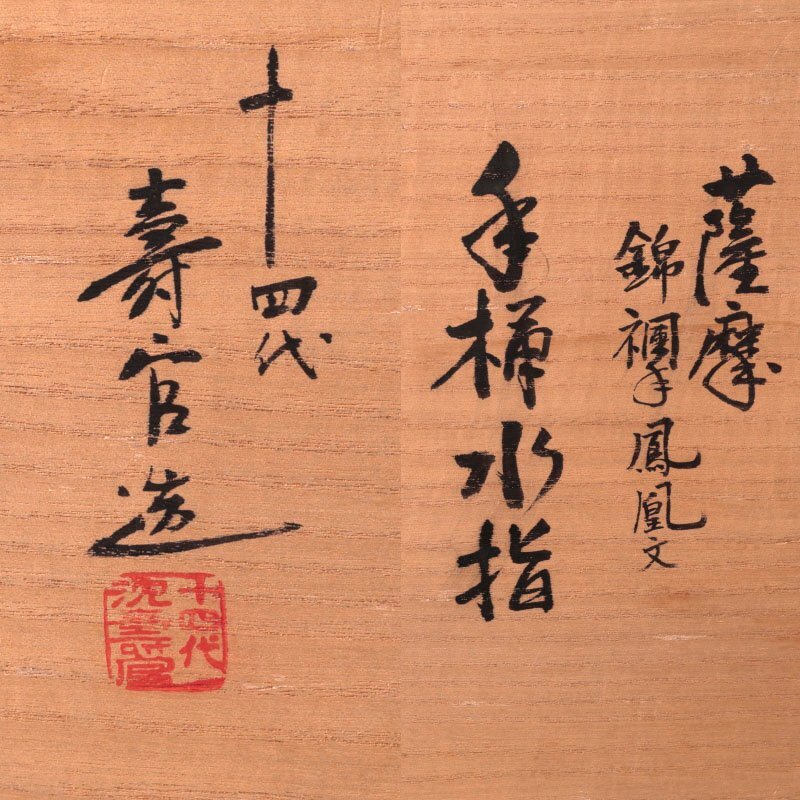 薩摩
錦襴手鳳凰文
手樽水指
十四代
壽官造
十四代
沈壽官